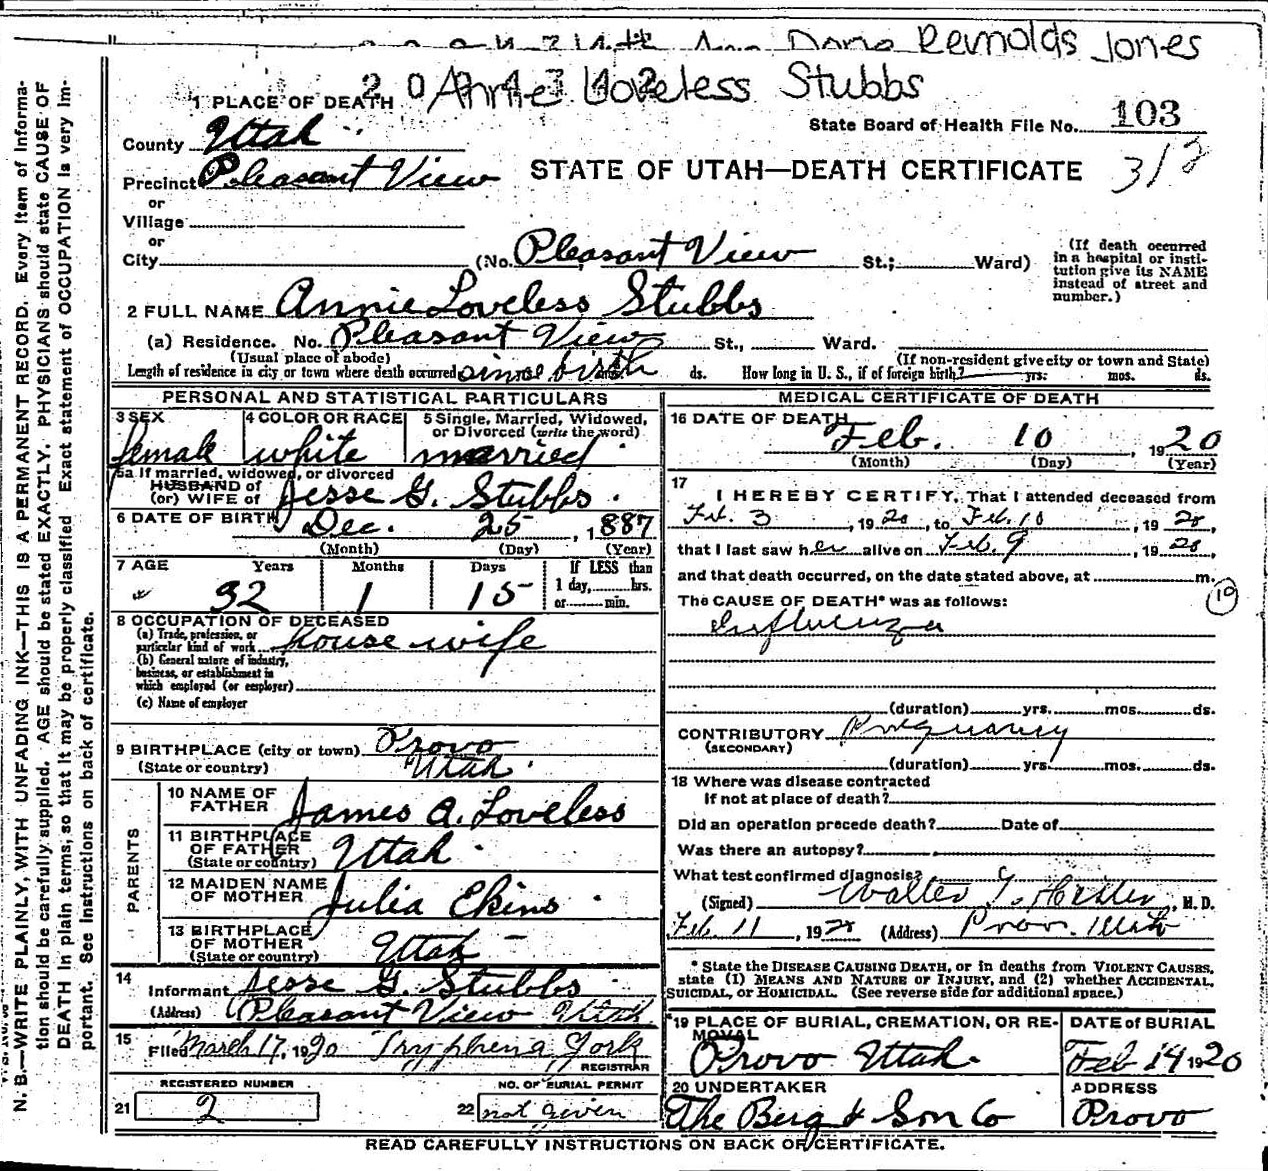 Reynolds Jones
Annie Loveless Stubbs
1 PLACE OF DEATH
State Board of Health File No. 103
County Utah
STATE OF UTAH—DEATH CERTIFICATE
312
Precinct Pleasant View
or
Village
or
City (No. Pleasant View St.; Ward)
(If death occurred in a hospital or institution give its NAME instead of street and number.)
2 FULL NAME Annie Loveless Stubbs
(a) Residence. No. Pleasant View St., Ward.
(Usual place of abode) (If non-resident give city or town and State)
Length of residence in city or town where death occurred since birth ds. How long in U. S., if of foreign birth? yrs. mos. ds.
PERSONAL AND STATISTICAL PARTICULARS
3 SEX 4 COLOR OR RACE 5 Single, Married, Widowed, or Divorced (write the word)
female white married
5a If married, widowed, or divorced
HUSBAND of
(or) WIFE of Jesse G. Stubbs
6 DATE OF BIRTH Dec. 25, 1887
(Month) (Day) (Year)
7 AGE Years Months Days If LESS than 1 day, hrs. or min.
32 1 15
8 OCCUPATION OF DECEASED
(a) Trade, profession, or particular kind of work house wife
(b) General nature of industry, business, or establishment in which employed (or employer)
(c) Name of employer
9 BIRTHPLACE (city or town) Provo
(State or country) Utah
PARENTS
10 NAME OF FATHER James A. Loveless
11 BIRTHPLACE OF FATHER (State or country) Utah
12 MAIDEN NAME OF MOTHER Julia Ekins
13 BIRTHPLACE OF MOTHER (State or country) Utah
14 Informant Jesse G. Stubbs
(Address) Pleasant View Utah
15 Filed March 17, 1920 Tryphena York
REGISTRAR
REGISTERED NUMBER NO. OF BURIAL PERMIT
21 2 22 not given
MEDICAL CERTIFICATE OF DEATH
16 DATE OF DEATH Feb. 10 1920
(Month) (Day) (Year)
17 I HEREBY CERTIFY, That I attended deceased from
Feb. 3, 1920, to Feb. 10, 1920,
that I last saw her alive on Feb. 9, 1920,
and that death occurred, on the date stated above, at m.
The CAUSE OF DEATH* was as follows:
19
Influenza
(duration) yrs. mos. ds.
CONTRIBUTORY Pregnancy
(SECONDARY)
(duration) yrs. mos. ds.
18 Where was disease contracted
If not at place of death?
Did an operation precede death? Date of
Was there an autopsy?
What test confirmed diagnosis?
(Signed) Walter T. Hasler, M. D.
Feb. 11, 1920 (Address) Provo. Utah
* State the DISEASE CAUSING DEATH, or in deaths from VIOLENT CAUSES, state (1) MEANS AND NATURE OF INJURY, and (2) whether ACCIDENTAL, SUICIDAL, or HOMICIDAL. (See reverse side for additional space.)
19 PLACE OF BURIAL, CREMATION, OR REMOVAL DATE of BURIAL
Provo Utah Feb 14 1920
20 UNDERTAKER ADDRESS
The Berg & Son Co Provo
READ CAREFULLY INSTRUCTIONS ON BACK OF CERTIFICATE.
N. B.—WRITE PLAINLY, WITH UNFADING INK—THIS IS A PERMANENT RECORD. Every item of information should be carefully supplied. AGE should be stated EXACTLY. PHYSICIANS should state CAUSE OF DEATH in plain terms, so that it may be properly classified. Exact statement of OCCUPATION is very important. See Instructions on back of certificate.